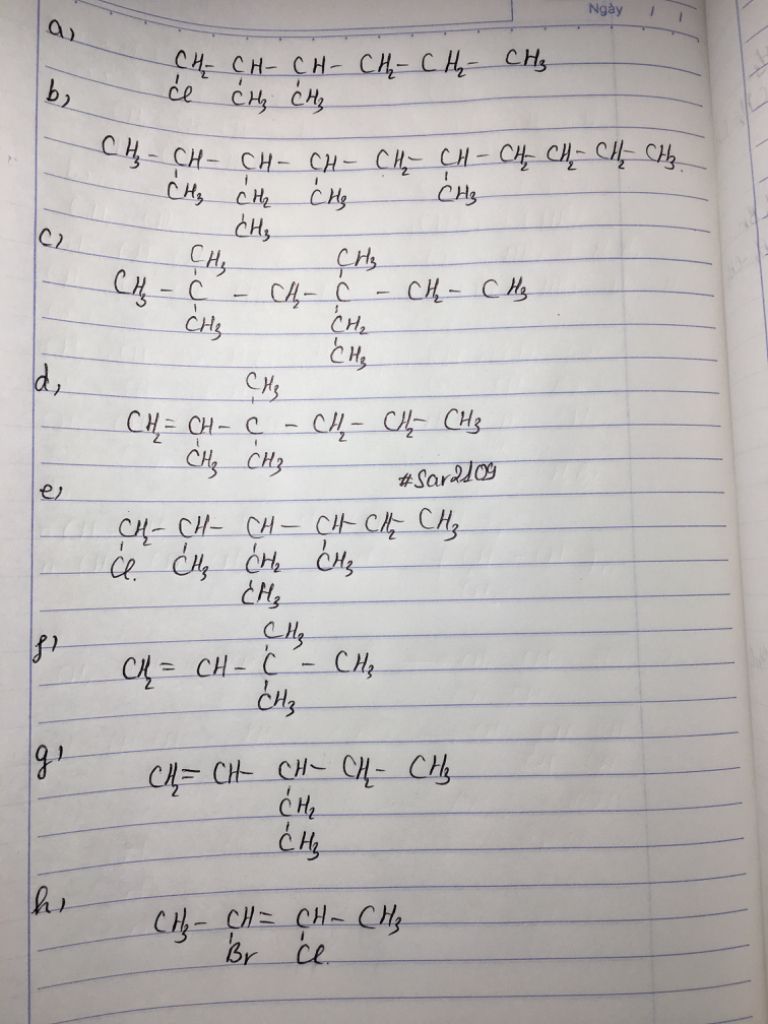 Ngày / /
a,
CH₂- CH- CH- CH₂- CH₂- CH₃
Cl CH₃ CH₃
b,
CH₃- CH- CH- CH- CH₂- CH- CH₂- CH₂- CH₂- CH₃
CH₃ CH₂ CH₃ CH₃
CH₃
c,
CH₃ CH₃
CH₃- C - CH₂- C - CH₂- CH₃
CH₃ CH₂
CH₃
d,
CH₃
CH₂= CH- C - CH₂- CH₂- CH₃
CH₃ CH₃
#Sar2109
e,
CH₂- CH- CH- CH- CH₂- CH₃
Cl. CH₃ CH₂ CH₃
CH₃
f,
CH₃
CH₂= CH- C - CH₃
CH₃
g,
CH₂= CH- CH- CH₂- CH₃
CH₂
CH₃
h,
CH₃- CH= CH- CH₃
Br Cl